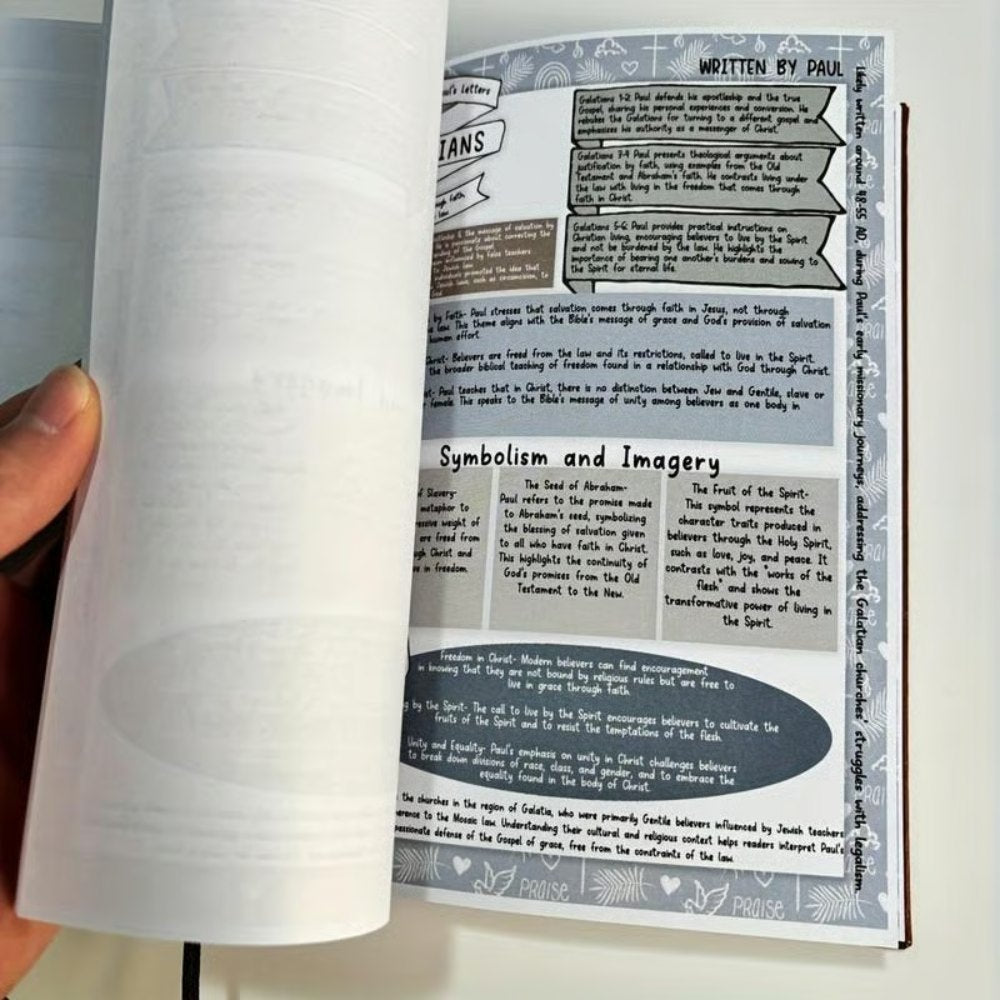 WRITTEN BY PAUL
Paul's letters
IANS
through faith
law
Galatians 1-2: Paul defends his apostleship and the true
Gospel, sharing his personal experiences and conversion. He
rebukes the Galatians for turning to a different gospel and
emphasizes his authority as a messenger of Christ.
Galatians 3-4: Paul presents theological arguments about
justification by faith, using examples from the Old
Testament and Abraham's faith. He contrasts living under
the law with living in the freedom that comes through
faith in Christ.
Galatians 5-6: Paul provides practical instructions on
Christian living, encouraging believers to live by the Spirit
and not be burdened by the law. He highlights the
importance of bearing one another's burdens and sowing to
the Spirit for eternal life.
& the message of salvation by
He is passionately about correcting the
of the Gospel
influenced by false teachers
to Jewish law.
individuals promoted the idea that
Jewish laws, such as circumcision, to
by Faith- Paul stresses that salvation comes through faith in Jesus, not through
law. This theme aligns with the Bible's message of grace and God's provision of salvation
human effort.
Christ- Believers are freed from the law and its restrictions, called to live in the Spirit.
the broader biblical teaching of freedom found in a relationship with God through Christ.
Paul teaches that in Christ, there is no distinction between Jew and Gentile, slave or
female. This speaks to the Bible's message of unity among believers as one body in
Symbolism and Imagery
of Slavery-
metaphor to
weight of
are freed from
Christ and
in freedom.
The Seed of Abraham-
Paul refers to the promise made
to Abraham's seed, symbolizing
the blessing of salvation given
to all who have faith in Christ.
This highlights the continuity of
God's promises from the Old
Testament to the New.
The Fruit of the Spirit-
This symbol represents the
character traits produced in
believers through the Holy Spirit,
such as love, joy, and peace. It
contrasts with the "works of the
flesh" and shows the
transformative power of living in
the Spirit.
Freedom in Christ- Modern believers can find encouragement
in knowing that they are not bound by religious rules but are free to
live in grace through faith.
by the Spirit- The call to live by the Spirit encourages believers to cultivate the
fruits of the Spirit and to resist the temptations of the flesh.
Unity and Equality- Paul's emphasis on unity in Christ challenges believers
to break down divisions of race, class, and gender, and to embrace the
equality found in the body of Christ.
the churches in the region of Galatia, who were primarily Gentile believers influenced by Jewish teachers
to the Mosaic law. Understanding their cultural and religious context helps readers interpret Paul's
passionate defense of the Gospel of grace, free from the constraints of the law.
likely written around 48-55 AD, during Paul's early missionary journeys, addressing the Galatian churches' struggles with legalism.
PRAISE
PRAISE